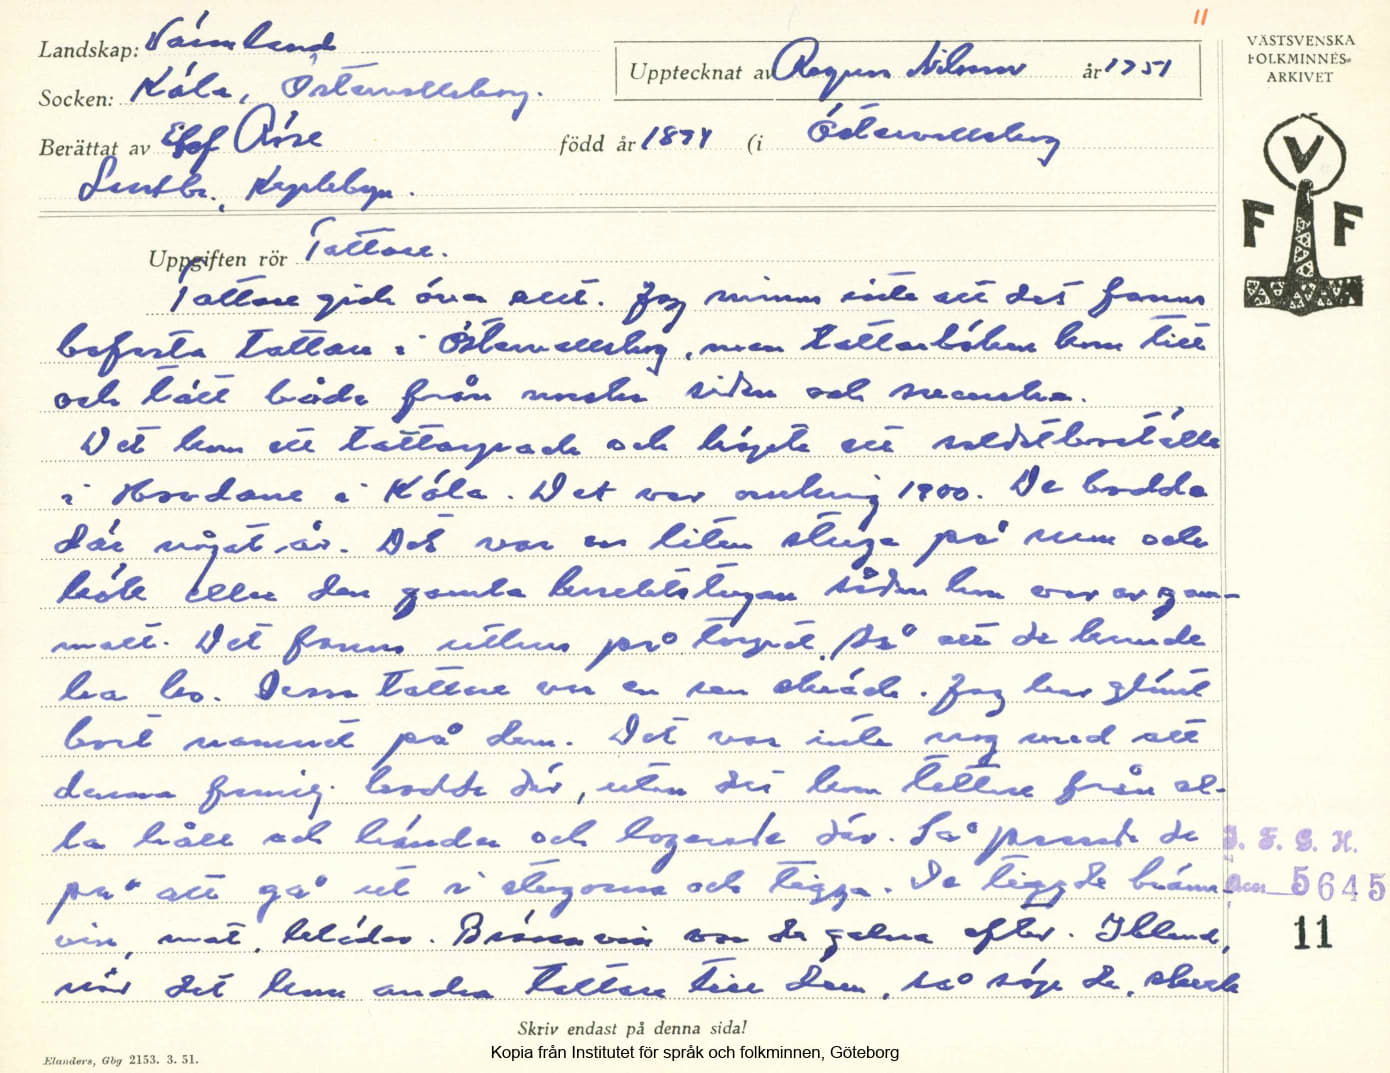 11
Landskap: Värmland
Socken: Köla, Östervallskog.
Upptecknat av Ragnar Nilsson år 1951
VÄSTSVENSKA
FOLKMINNES-
ARKIVET
V
F F
Berättat av Elof Röse född år 1874 (i Östervallskog
Lantbr.,
Uppgiften rör Tattare.
Tattare gick över allt. Jag minns inte att det fanns
bofasta tattare i Östervallskog, men tattarböken kom titt
och tätt både från norska sidan och svenska.
Det kom ett tattarpack och köpte ett soldatboställe
i Hovdane i Köla. Det var omkring 1900. De bodde
där något år. Det var en liten stuga på rum och
kök eller den gamla knektstugan sådan hon var av gam-
malt. Det fanns uthus på torpet så att de kunde
ha ko. Dessa tattare var en ren skräck. Jag har glömt
bort namnet på dem. Det var inte nog med att
denna familj bodde där, utan det kom tattare från al-
la håll och kánder och logerade där. Så passade de
på att gå ut i stugorna och tigga. De tiggde bränn-
vin, mat, kläder. Brännvin var de galna efter. Ibland,
när det kom andra tattare till dem, så söp de, skrek
I. F. G. H.
Acc 5645
11
Skriv endast på denna sida!
Kopia från Institutet för språk och folkminnen, Göteborg
Elanders, Gbg 2153. 3. 51.